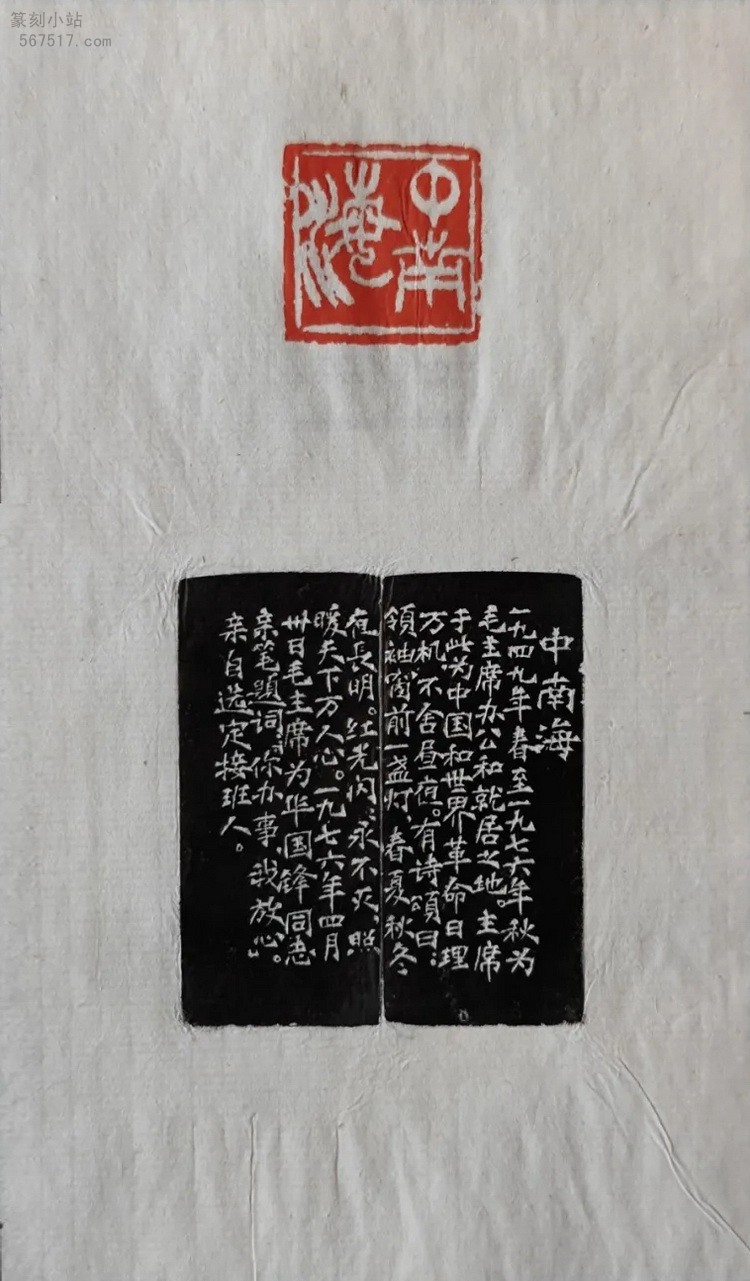 篆刻小站
567517.com
中南
海
中南海
一九四九年春至一九七六年秋为
毛主席办公和就居之地。主席
于此为中国和世界革命日理
万机不舍昼夜。有诗颂曰：
领袖窗前一盏灯、春夏秋冬
夜长明。红光闪闪永不灭、照
暖天下万人心。一九七六年四月
卅日毛主席为华国锋同志
亲笔题词“你办事，我放心”。
亲自选定接班人。